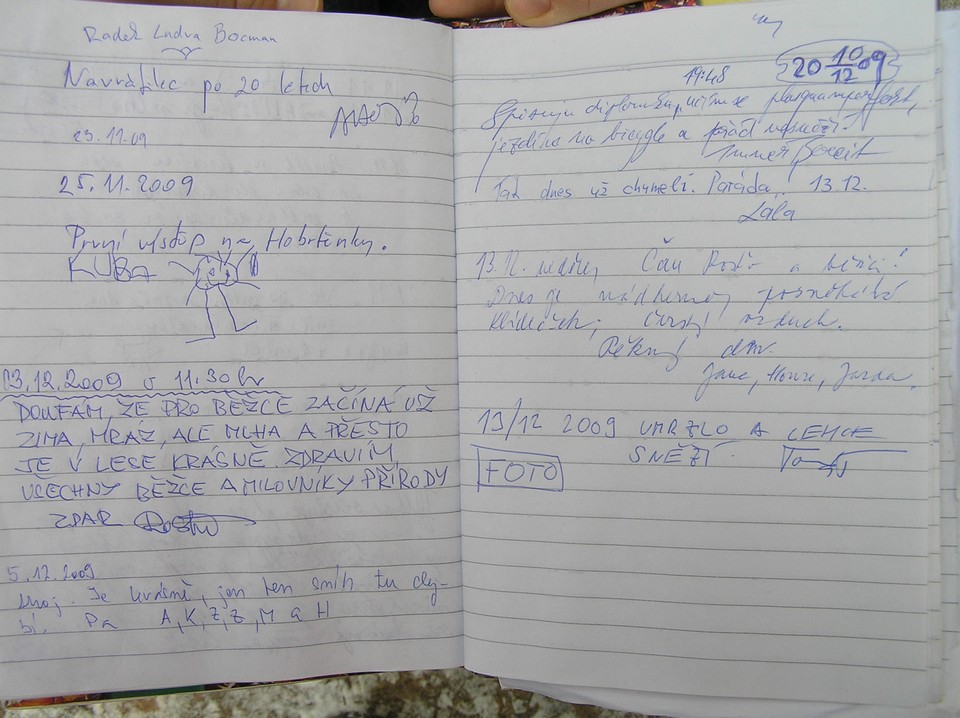 Radek Ludva Bocman
Navrátilec po 20 letech
23.11.09
25.11.2009
První vstup na Hobrtěnky.
KUBA
03.12.2009 v 11.30hr
DOUFÁM, ŽE PRO BĚŽCE ZAČÍNÁ UŽ
ZIMA, MRÁZ, ALE MLHA A PŘESTO
JE V LESE KRÁSNĚ. ZDRAVÍM
VŠECHNY BĚŽCE A MILOVNÍKY PŘÍRODY
ZDAR
5.12.2009
Ahoj. Je krásně, jen ten sníh tu chy-
bí. Pa A, K, Z, Z, M a H
19:48
20 10/12 09
jezdíme na bicygle a
Tak dnes už chumelí. Paráda. 13.12.
Lála
13.12. neděle, Čau a běžci!
Dnes je nádherně,
klídeček, čerstvý vzduch.
Pěkný den.
Jana, Honza, Jarda.
13/12 2009 UMRZLO A LEHCE
SNĚŽÍ.
FOTO